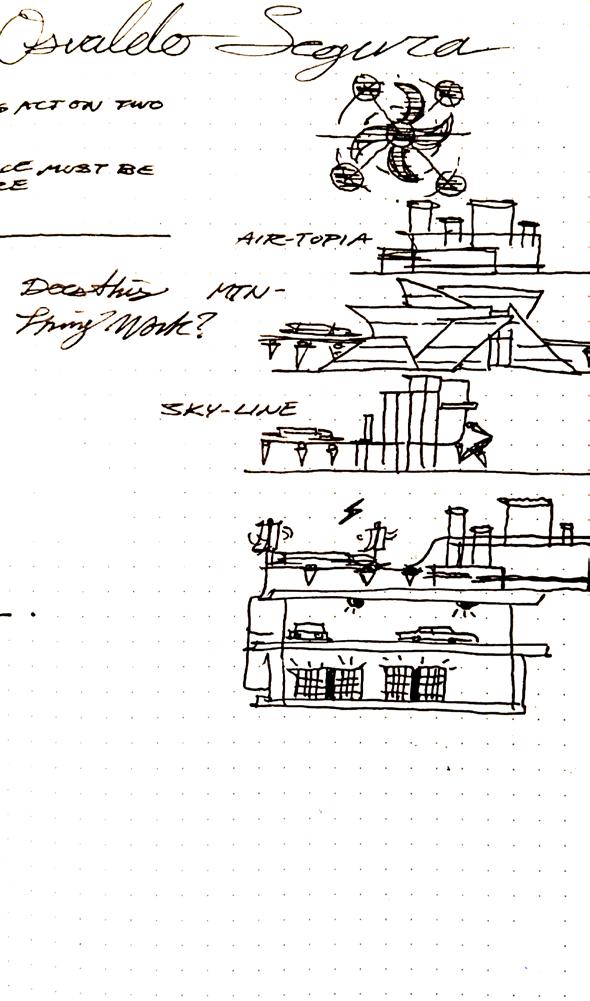 Osvaldo Segura
S ACT ON TWO
CE MUST BE
RE
AIR-TOPIA
Does this MTN-
Thing Work?
SKY-LINE